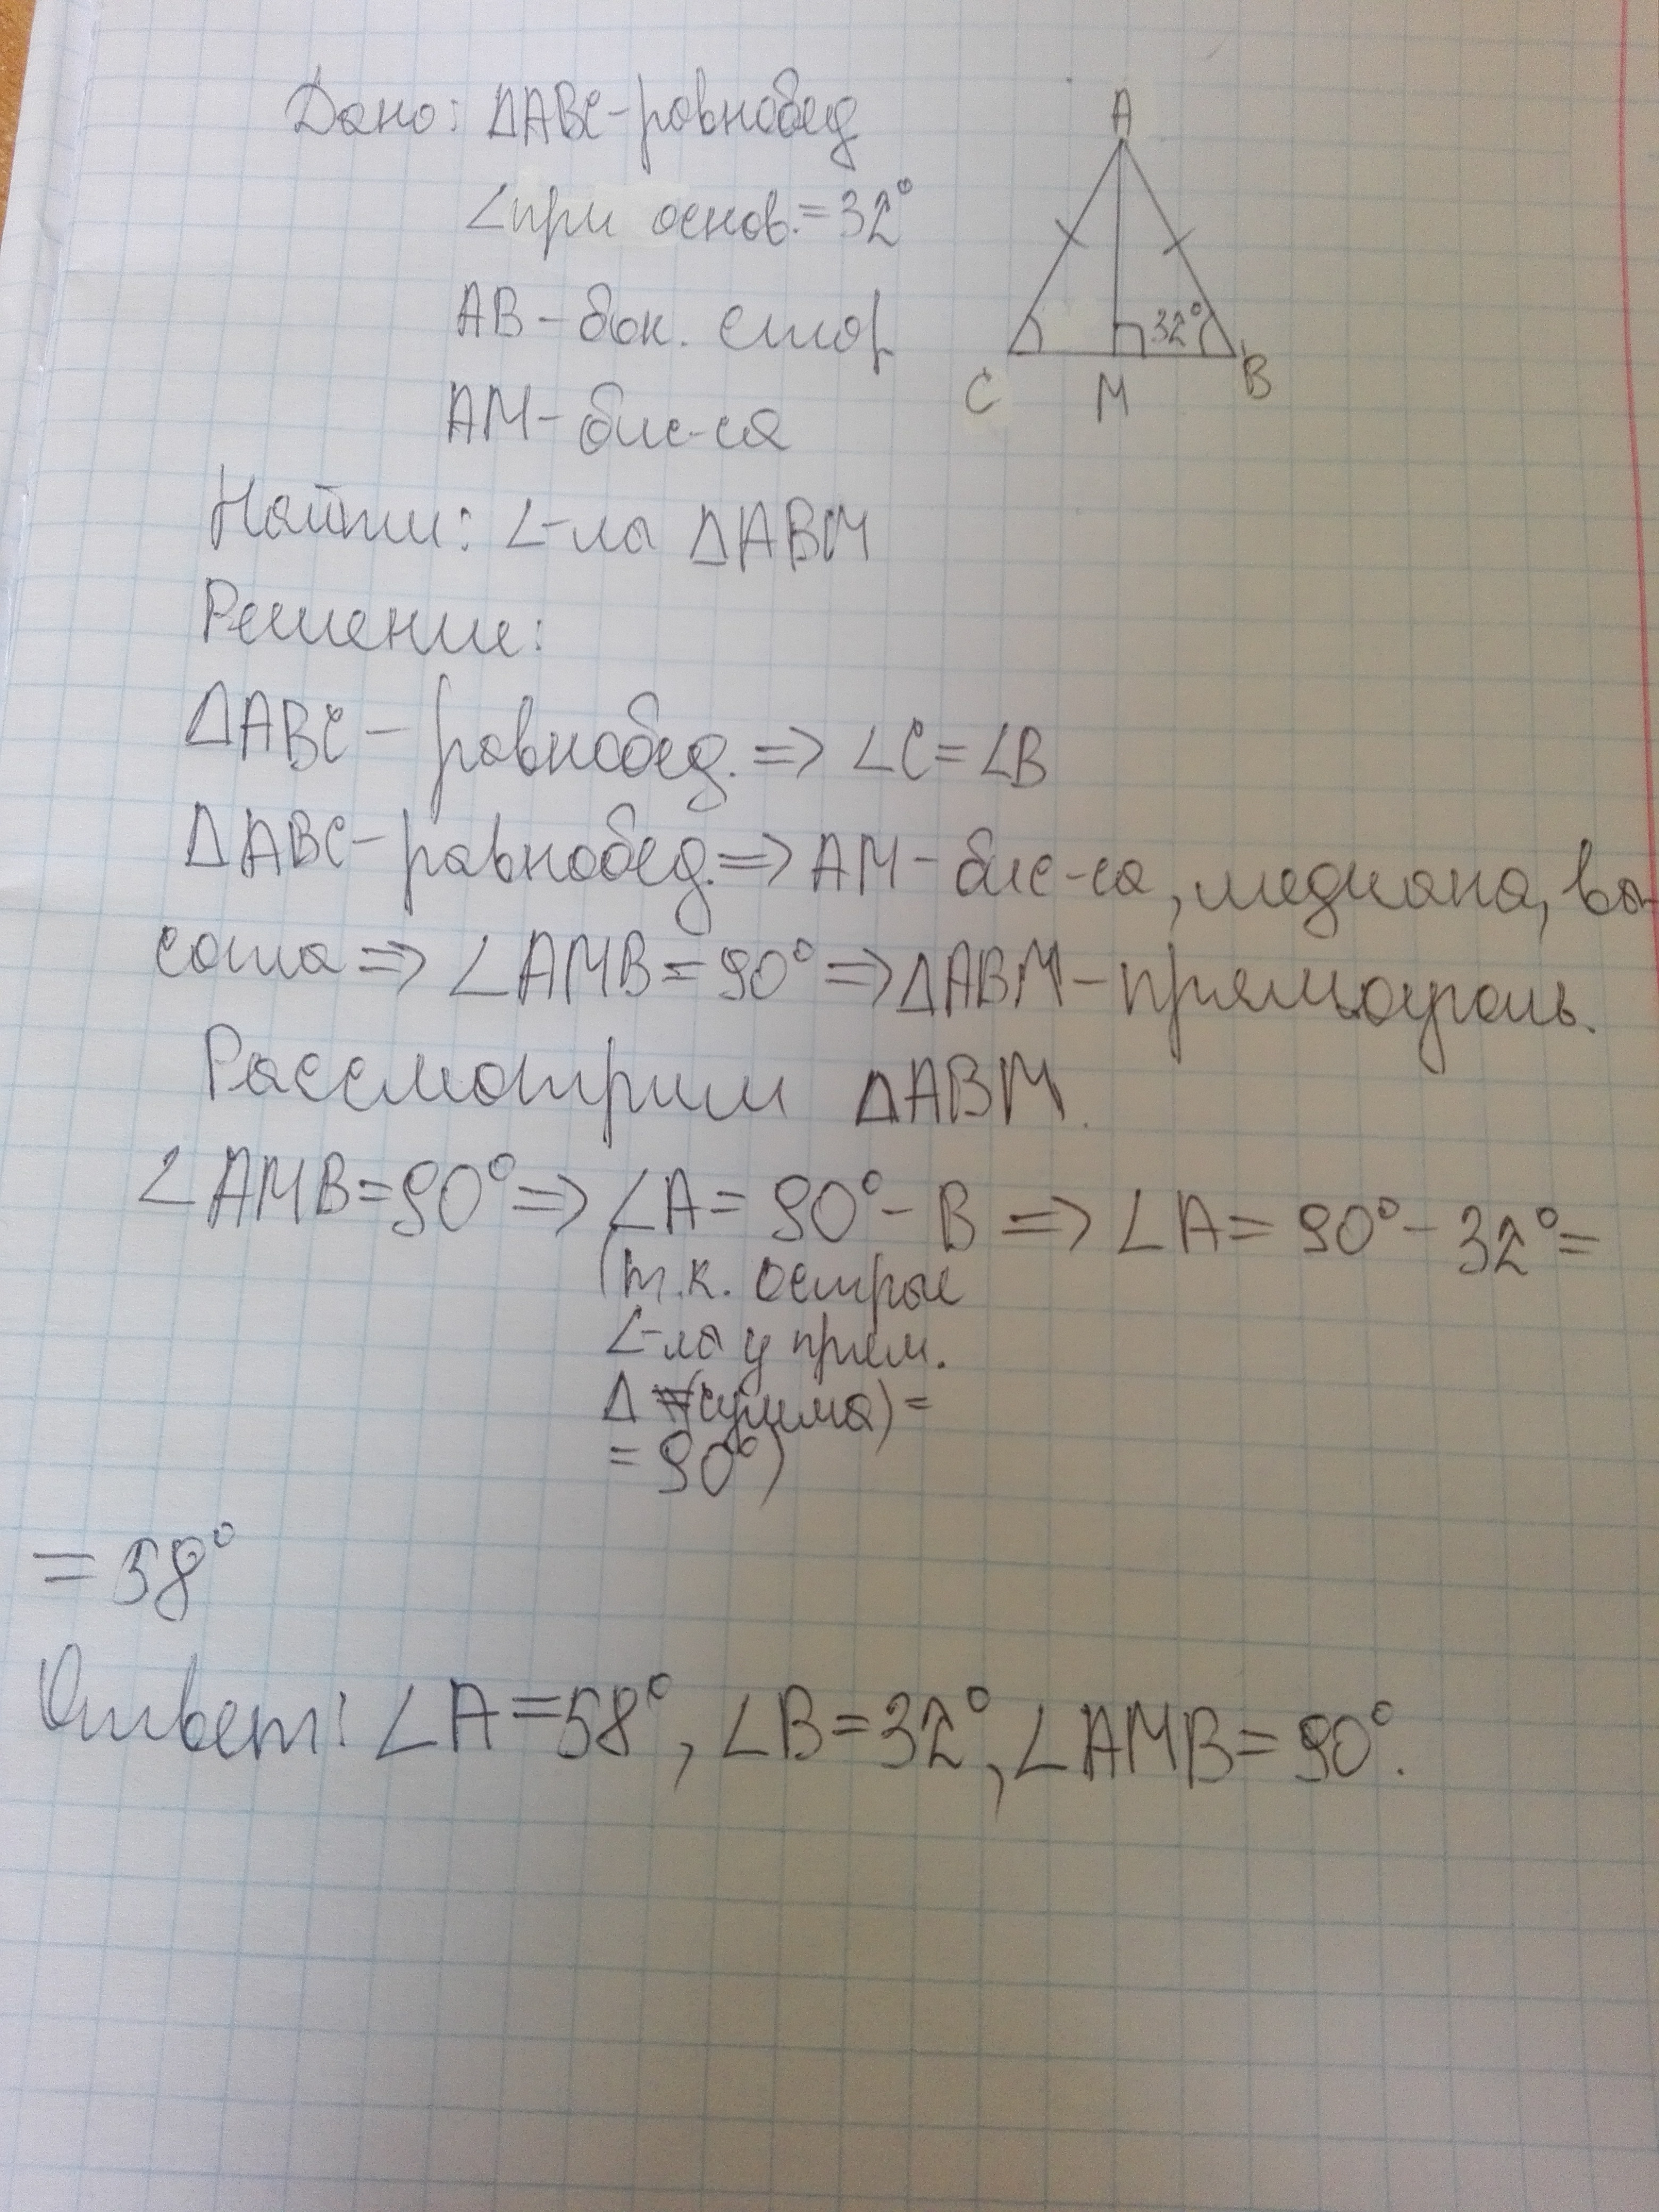 Дано: ΔABC-равнобед
∠при основ.=32°
AB-бок. стор
AM-бис-са
Найти: ∠-лы ΔABM
Решение:
ΔABC - равнобед. => ∠C=∠B
ΔABC-равнобед.=> AM-бис-са, медиана, вы-
сота => ∠AMB=90° => ΔABM-прямоуголь.
Рассмотрим ΔABM.
∠AMB=90° => ∠A= 90°-B => ∠A= 90°-32°=
(т.к. острые
∠-лы у прям.
Δ (сумма)=
=90°)
=58°
Ответ: ∠A=58°, ∠B=32°, ∠AMB=90°.
A
32°
C
M
B